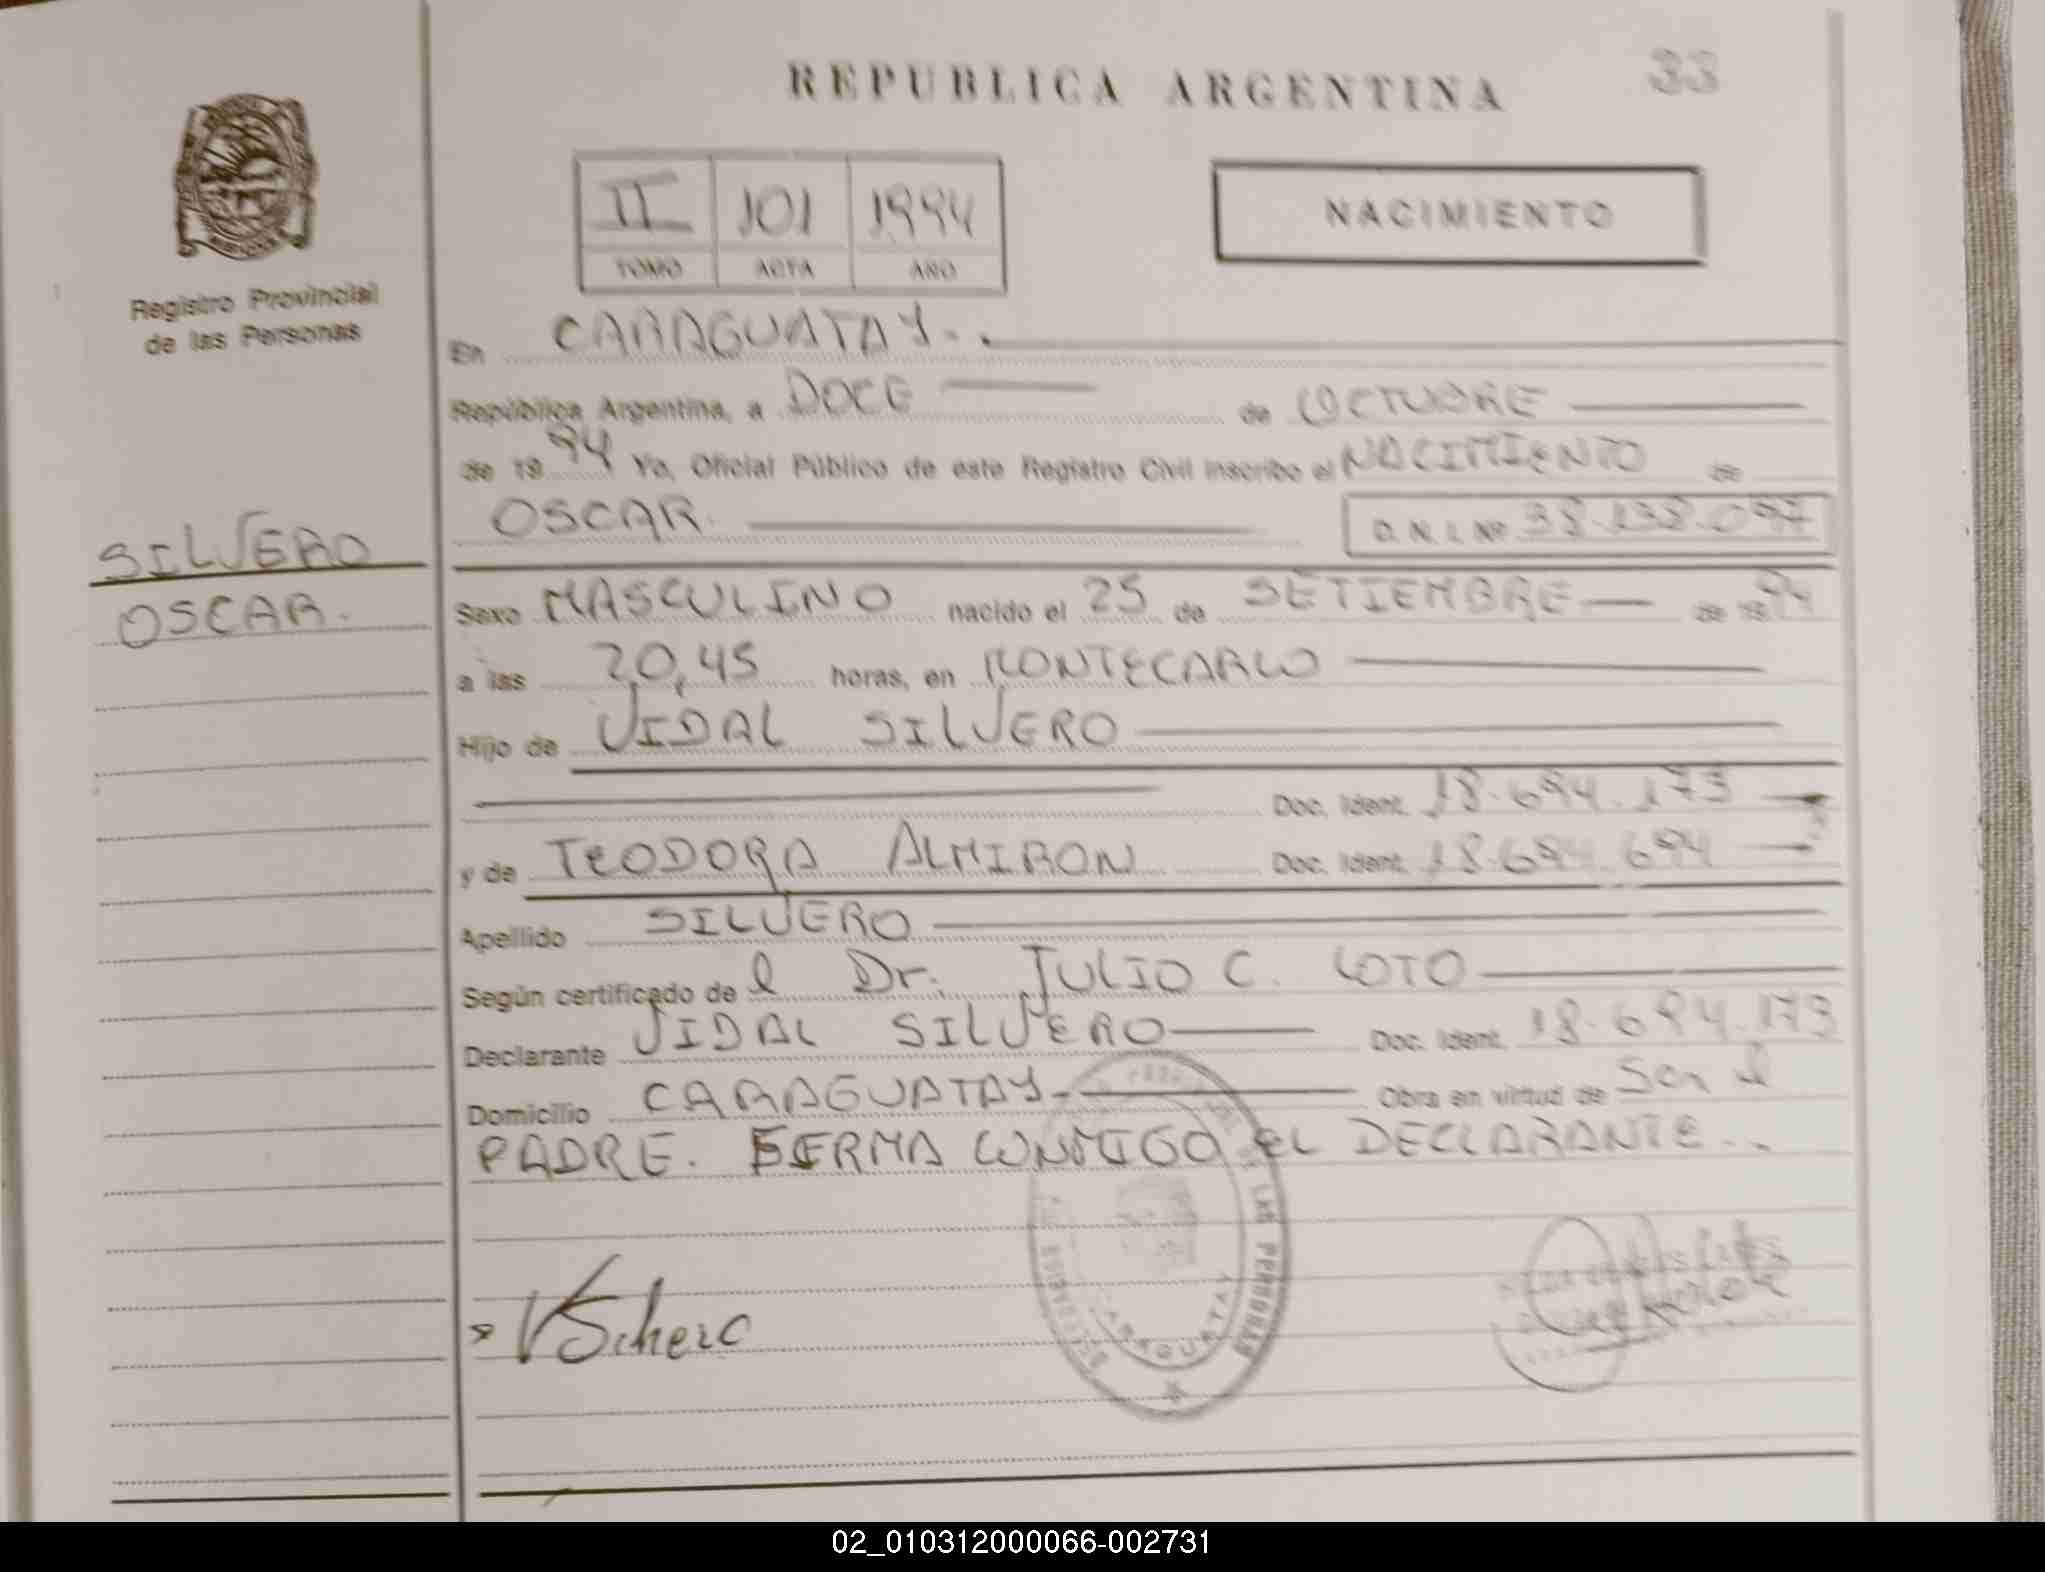 REPUBLICA ARGENTINA 33
II 101 1994
TOMO ACTA AÑO
NACIMIENTO
Registro Provincial
de las Personas
SILVERO
OSCAR.
En CARAGUATAY-.
República Argentina, a DOCE de OCTUBRE
de 1994 Yo, Oficial Público de este Registro Civil inscribo el NACIMIENTO de
OSCAR. D. N. I. Nº 38.138.097
Sexo MASCULINO nacido el 25 de SETIEMBRE de 1994
a las 20,45 horas, en MONTECARLO
Hijo de VIDAL SILVERO
Doc. Ident. 18.694.173
y de TEODORA ALMIRON Doc. Ident. 18.694.694
Apellido SILVERO
Según certificado de l Dr. JULIO C. LOTO
Declarante VIDAL SILVERO Doc. Ident. 18.694.173
Domicilio CARAGUATAY- Obra en virtud de Ser el
PADRE. FIRMA CONMIGO EL DECLARANTE..
DE LAS PERSONAS
CARAGUATAY
02_010312000066-002731